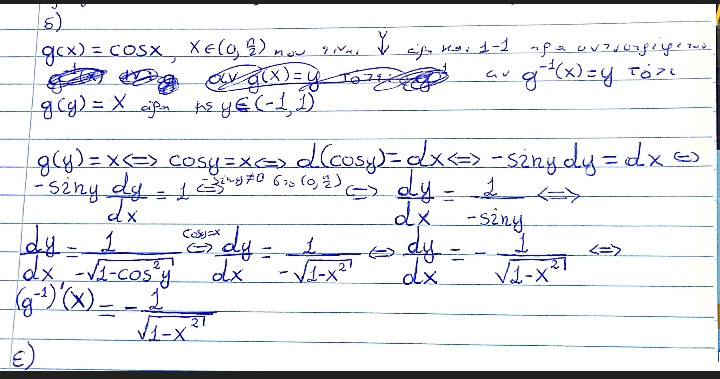 δ)
g(x) = cosx, x∈(0, π/2) που είναι ↓ άρα και 1-1 άρα αντιστρέφεται
αν g(x)=y τότε αν g⁻¹(x)=y τότε
g(y) = x άρα με y∈(-1,1)
g(y)=x⟺ cosy=x⟺ d(cosy)=dx⟺ -siny dy = dx ⟺
-siny dy/dx = 1 ⟺ -siny≠0 στο (0, π/2) ⟺ dy/dx = 1/-siny ⟺
dy/dx = 1/-√1-cos²y ⟺ cosy=x dy/dx = 1/-√1-x² ⟺ dy/dx = - 1/√1-x² ⟺
(g⁻¹)'(x) = - 1/√1-x²
ε)